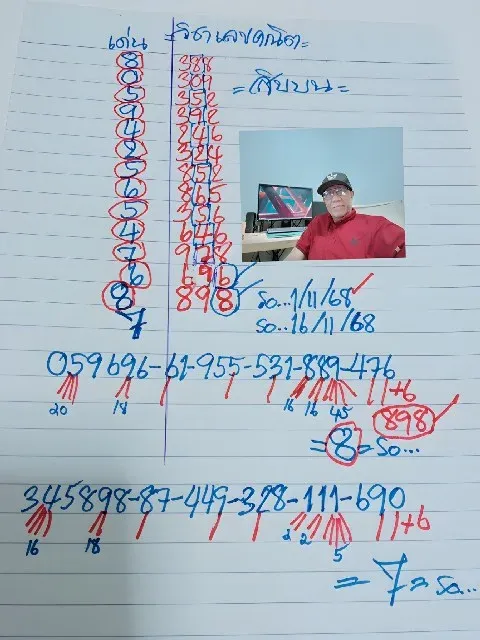 เด่น =วิชาเลขคณิต=
8 388
0 309
=สิบบน=
5 352
9 392
4 246
2 324
5 852
6 865
5 356
4 646
7 978
6 696
8 898 รอ...1/11/68
7 รอ..16/11/68
059696-61-955-531-889-476
20 18 16 16 45 +6
898
=8=รอ...
345898-87-449-328-111-690
16 18 2 2 5 +6
=7=รอ..